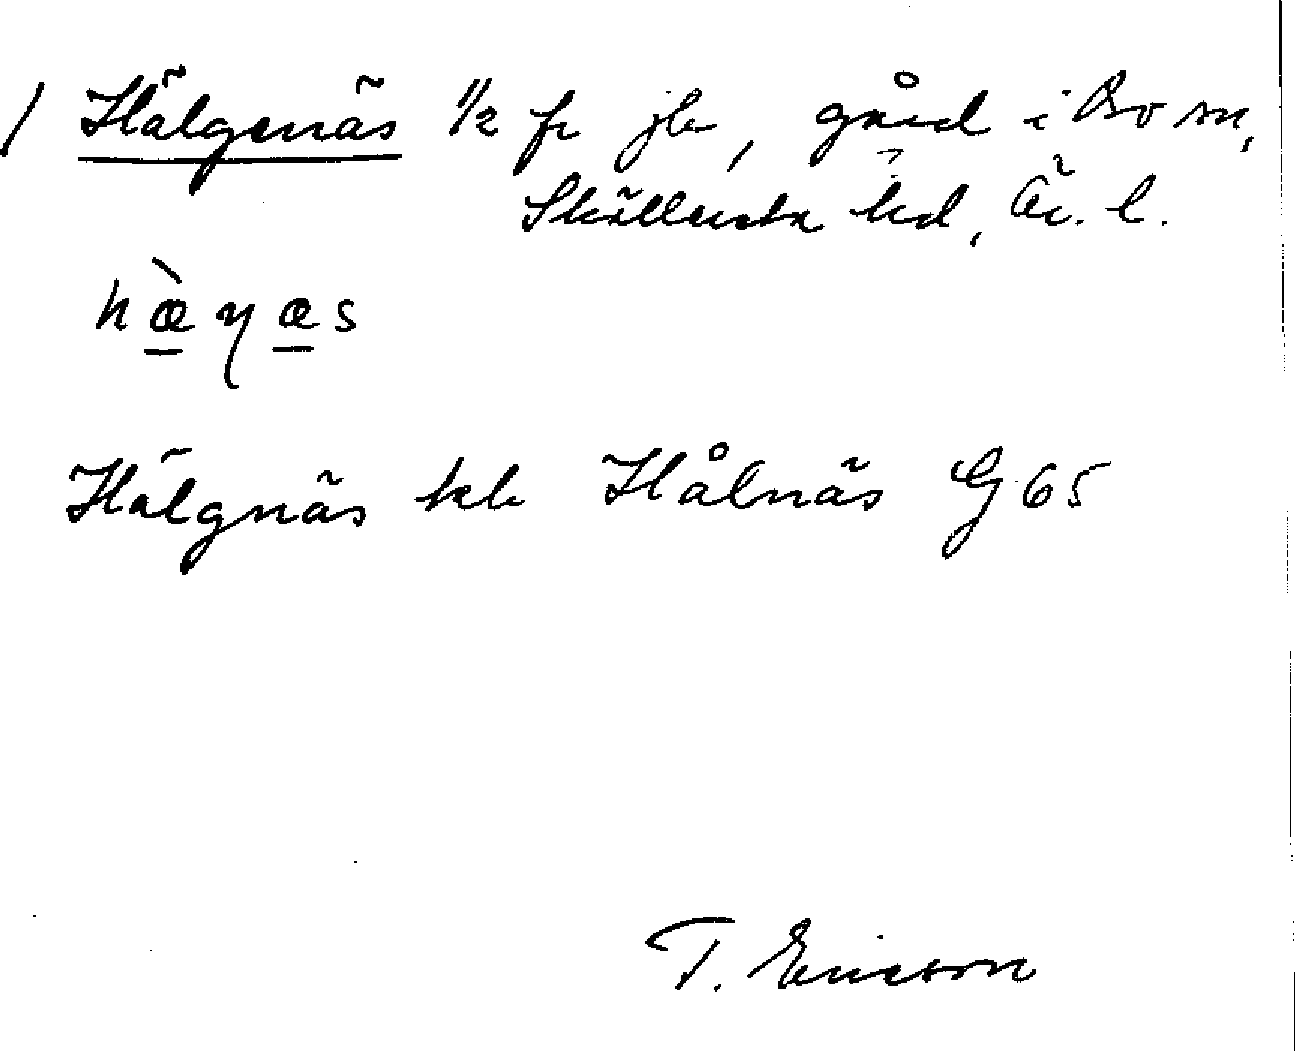 / Hälgenäs 1/2 fr jb, gård i Bo sn,
Sköllersta hd, Ör. l.
hæ̀ŋæs
Hälgnäs kb Hålnäs G 65
T. Ericson